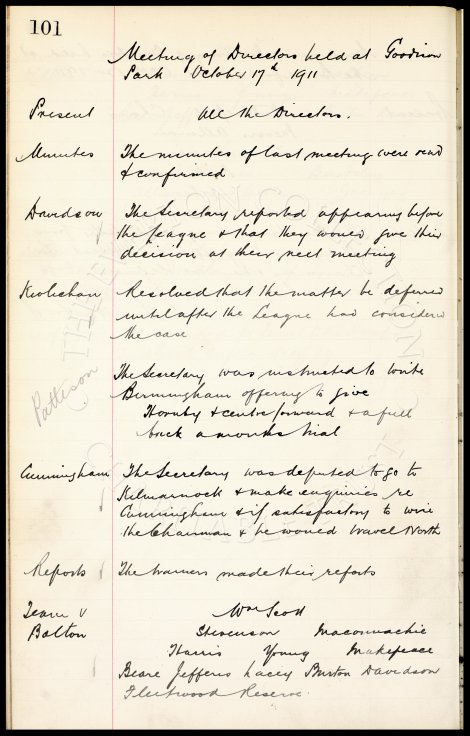 101
Meeting of Directors held at Goodison
Park October 17th 1911
Present All the Directors.
Minutes The minutes of last meeting were read
& confirmed
Davidson The Secretary reported appearing before
the League & that they would give their
decision at their next meeting
Resolved that the matter be deferred
until after the League had considered
the case
The Secretary was instructed to write
Patterson
Birmingham offering to give
Hornby & centre forward & a full
back a months trial
Cunningham The Secretary was deputed to go to
Kilmarnock & make enquiries re
Cunningham & if satisfactory to wire
the Chairman & he would travel North
Reports The trainers made their reports
Team v Wm Scott
Bolton Stevenson Maconnachie
Harris Young Makepeace
Beare Jefferis Lacey Burton Davidson
Fleetwood Reserve.